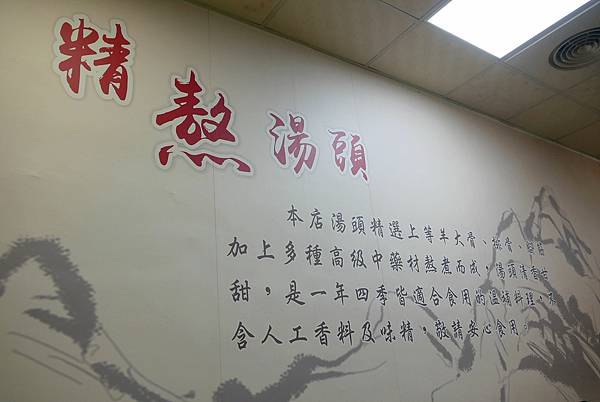 精熬湯頭
本店湯頭精選上等羊大骨、排骨、
加上多種高級中藥材熬煮而成,湯頭清香
甜,是一年四季皆適合食用的溫補料理,不
含人工香料及味精,敬請安心食用。